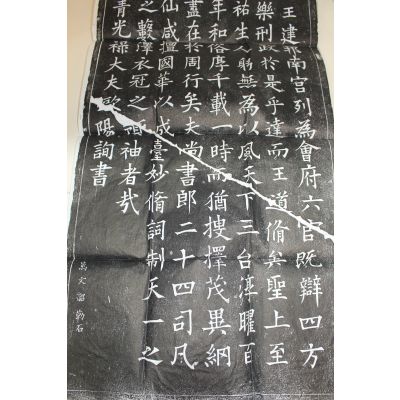 王建邦南宮列為會府六官既辯四方
樂刑政於是乎達而王道脩矣聖上至
祐生人躬無為以風天下三台淳曜百
年和俗厚千載一時而猶搜擇茂異網
盡在於周行矣夫尚書郎二十四司凡
仙咸擅國華以成臺妙脩詞制天一之
之藪澤衣冠之領袖者哉
青光祿大夫歐陽詢書
萬文韶勒石